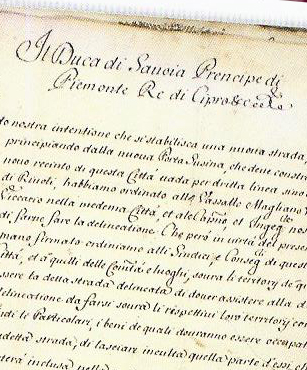 Il Duca di Sauoia Prencipe di
Piemonte Re di Cipro &c
do nostra intentione che si stabilisca una nuoua strada,
principiando dalla nuoua Porta Susina, che deue constru
nono recinto di questa Città uada per dritta linea sino
di Riuoli, habbiamo ordinato alle Vassallo Maghani
Viccario nella medema Città, et al Capno, et Ingeg nos
di, farne fare la delineatione. Che però in uirtù del prese
mano firmato ordiniamo alli Sindici, e Conseg di questa
Città, et à quelli delle Comtà e luoghi, soura li teritory de qua
essere la detta strada delineata di douer assistere alla d
delineatione da farsi soura li rispettiui loro territory
idi le Particolari, i beni de quali douranno essere occupat
detta strada, di lasciare inculta quella parte d'essi, ch
sarà inclusa nella